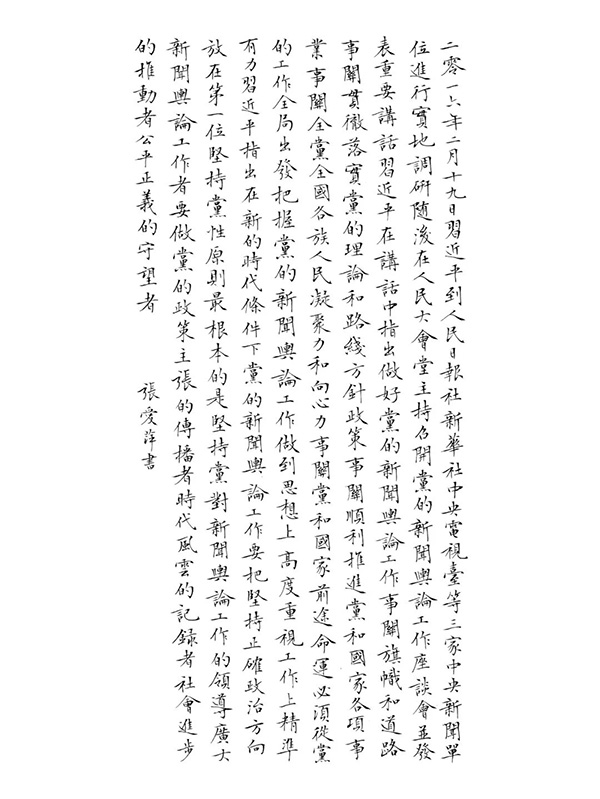 二零一六年二月十九日習近平到人民日報社新華社中央電視臺等三家中央新聞單
位進行實地調研隨後在人民大會堂主持召開黨的新聞輿論工作座談會並發
表重要講話習近平在講話中指出做好黨的新聞輿論工作事關旗幟和道路
事關貫徹落實黨的理論和路綫方針政策事關順利推進黨和國家各項事
業事關全黨全國各族人民凝聚力和向心力事關黨和國家前途命運必須從黨
的工作全局出發把握黨的新聞輿論工作做到思想上高度重視工作上精準
有力習近平指出在新的時代條件下黨的新聞輿論工作要把堅持正確政治方向
放在第一位堅持黨性原則最根本的是堅持黨對新聞輿論工作的領導廣大
新聞輿論工作者要做黨的政策主張的傳播者時代風雲的記録者社會進步
的推動者公平正義的守望者
張愛萍書